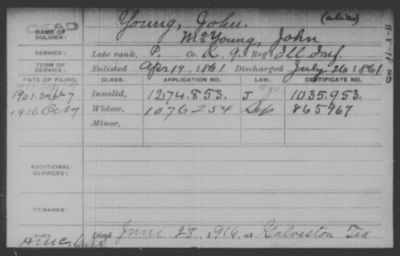 DEAD
Young, John. (alias)
NAME OF SOLDIER: McYoung, John
SERVICE: Late rank, P. Co. K, 9 Reg Ill Inf
TERM OF SERVICE: Enlisted Apr 19, 1861 Discharged July 26 1861
DATE OF FILING. CLASS. APPLICATION NO. LAW. CERTIFICATE NO.
1901 Invalid, 1274.853. 1035.953.
1916 Oct 7 Widow, 1076254 Sep 865967
Minor,
ADDITIONAL SERVICES:
REMARKS:
Died June 25, 1916, at Galveston Tex